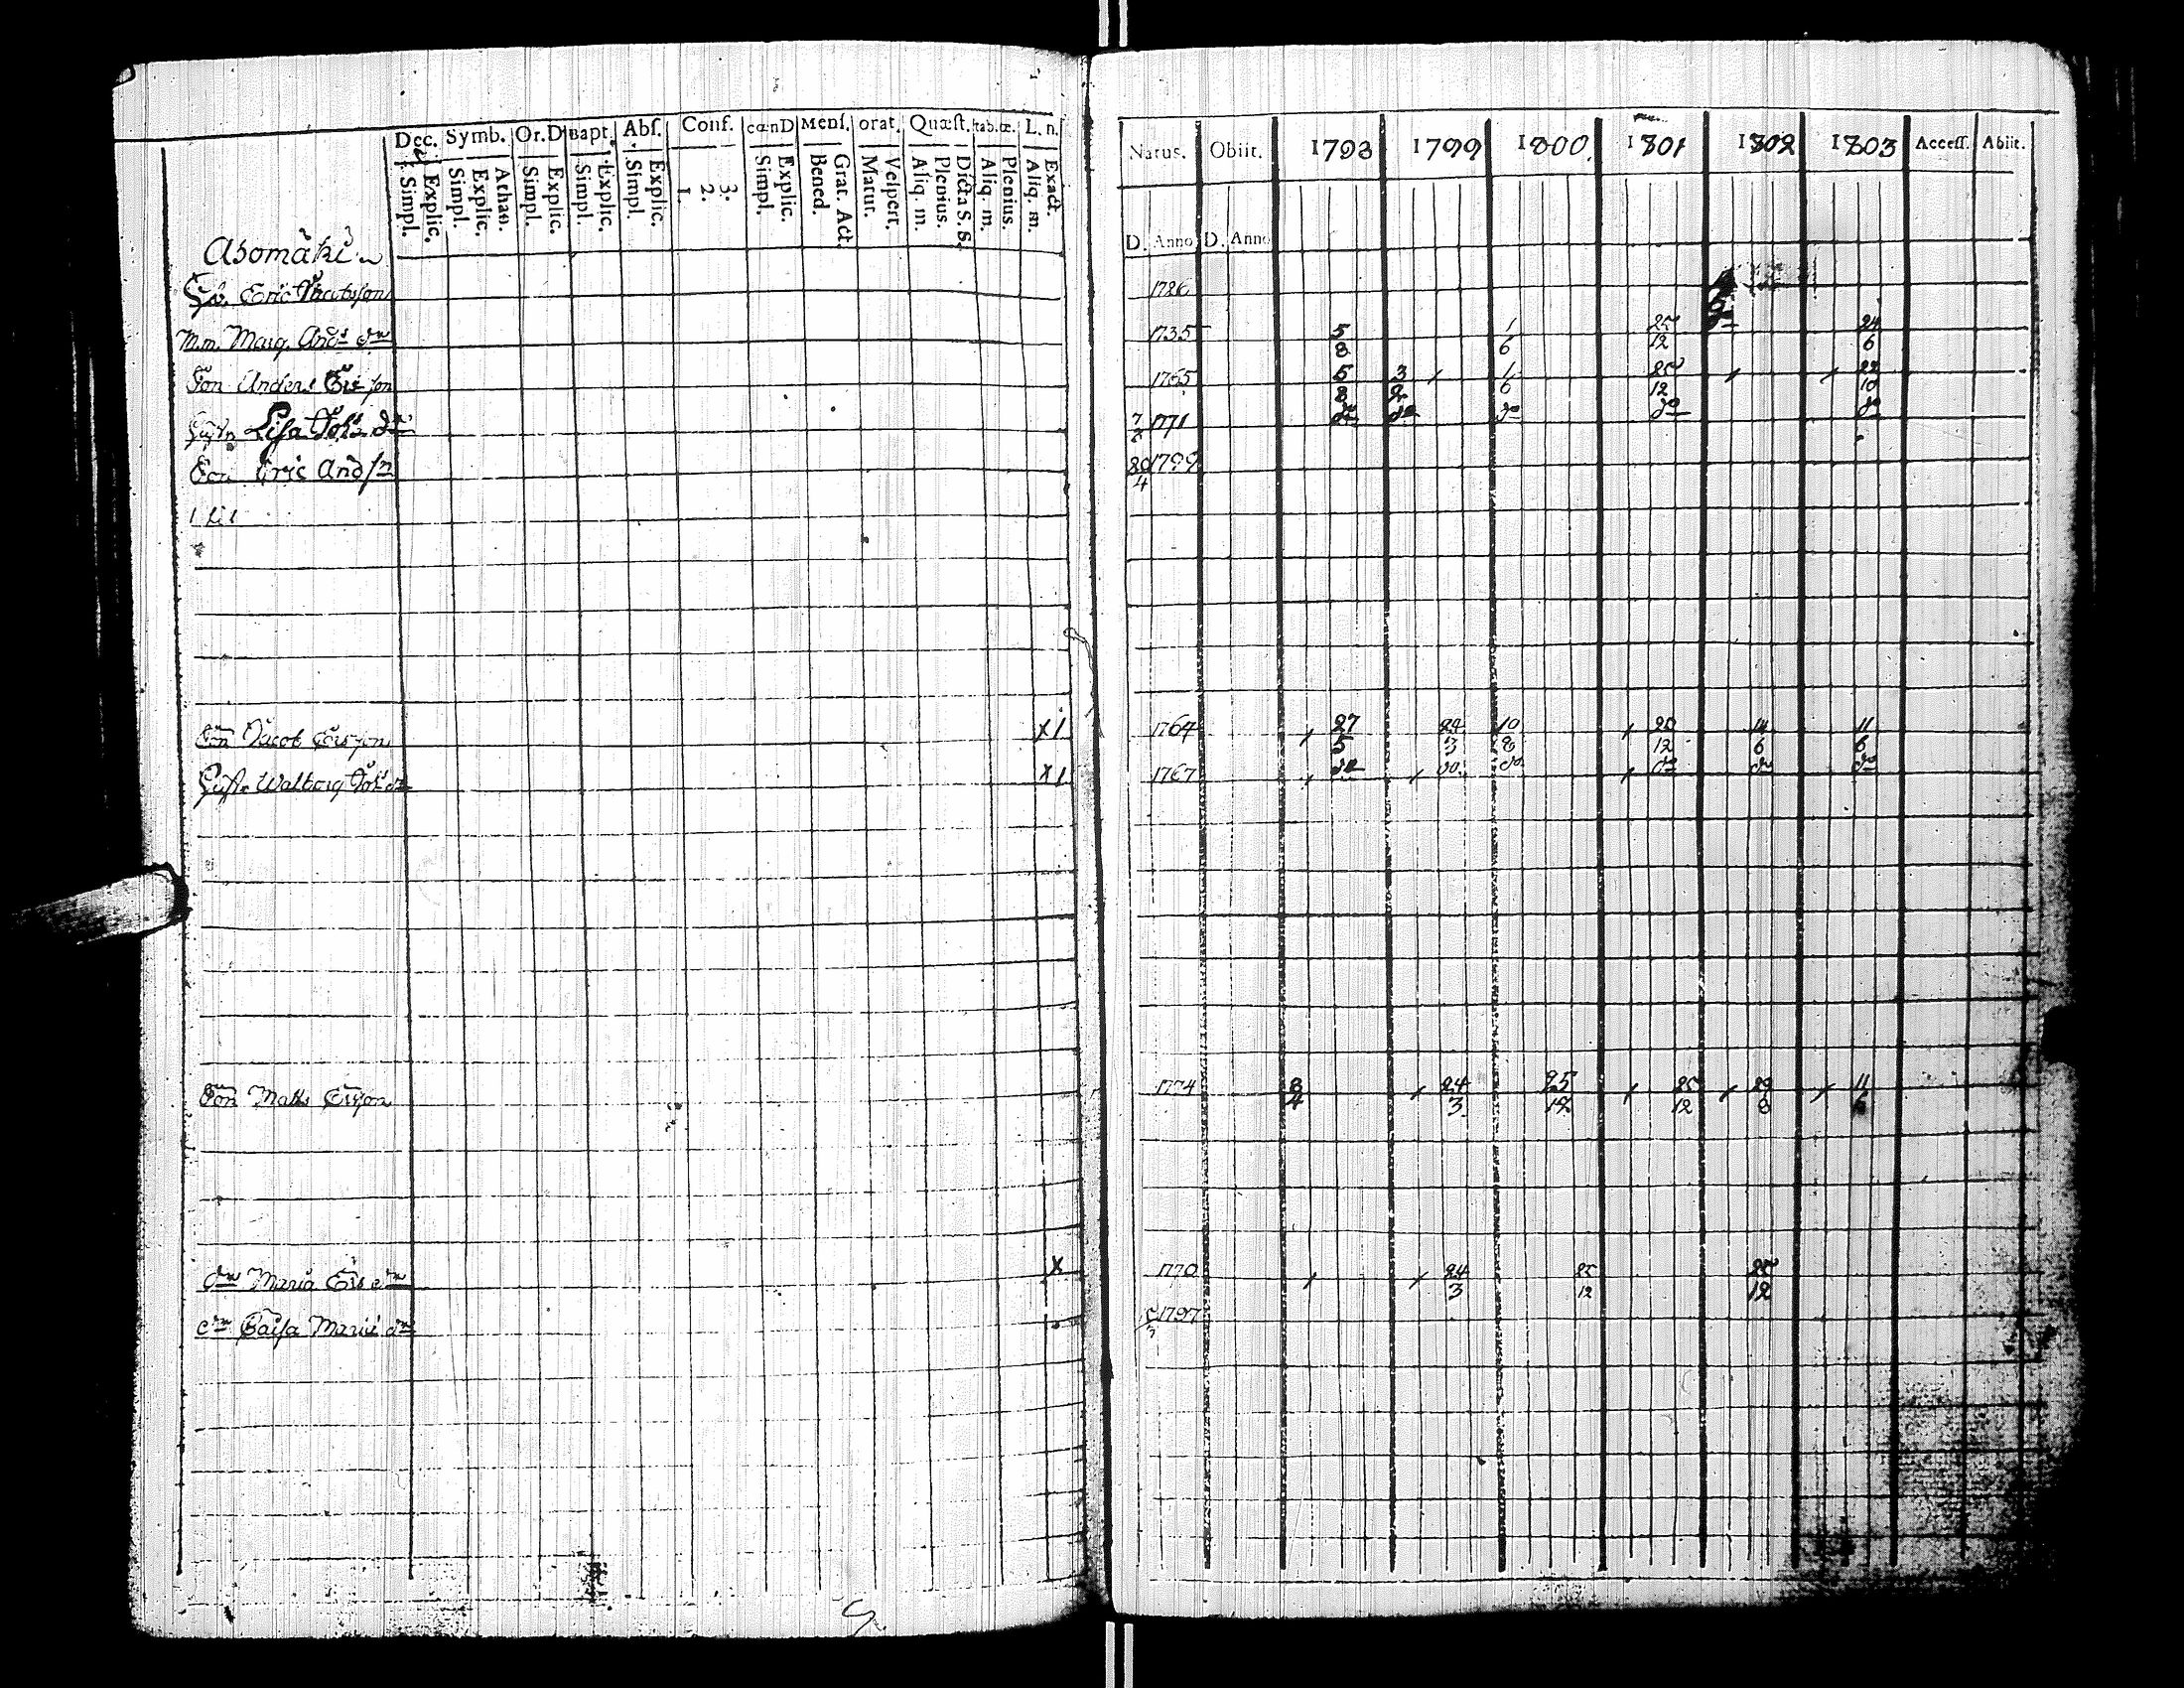 Dec. Symb. Or.D Bapt. Abſ. Conf. cœnD Menſ. orat. Quæſt. tab.œ. L. n.
Simpl. Explic. Simpl. Explic. Athan. Simpl. Explic. Simpl. Explic. Simpl. Explic. 1. 2. 3. Simpl. Explic. Bened. Grat. Act. Matut. Veſpert. Aliq. m. Plenius. Dicta S.S. Aliq. m. Plenius. Aliq. m. Exact.
Natus. Obiit. 1798 1799 1800 1801 1802 1803 Acceſſ. Abiit.
D. Anno D. Anno
Asomäki
Eric
M.m. Marg. And dr 1735 5 8 1 6 25 12 24 6
Son Anders Ericson 1765 5 8 3 2 1 6 25 12 22 10
Lisa Joh dr 7 1771 do do do do do
Son Eric And sn 30 4 1799
Son Jacob Ericson x 1 1764 27 5 24 3 10 8 25 12 14 6 11 6
Hust. Walborg Joh dr x 1 1767 do do do do do do
Son Matts Ericson 1774 8 4 24 3 25 12 25 12 29 8 11 6
dr Maria Eric dr x 1770 24 3 25 12 25 12
dr Caisa Mariæ dr 1797